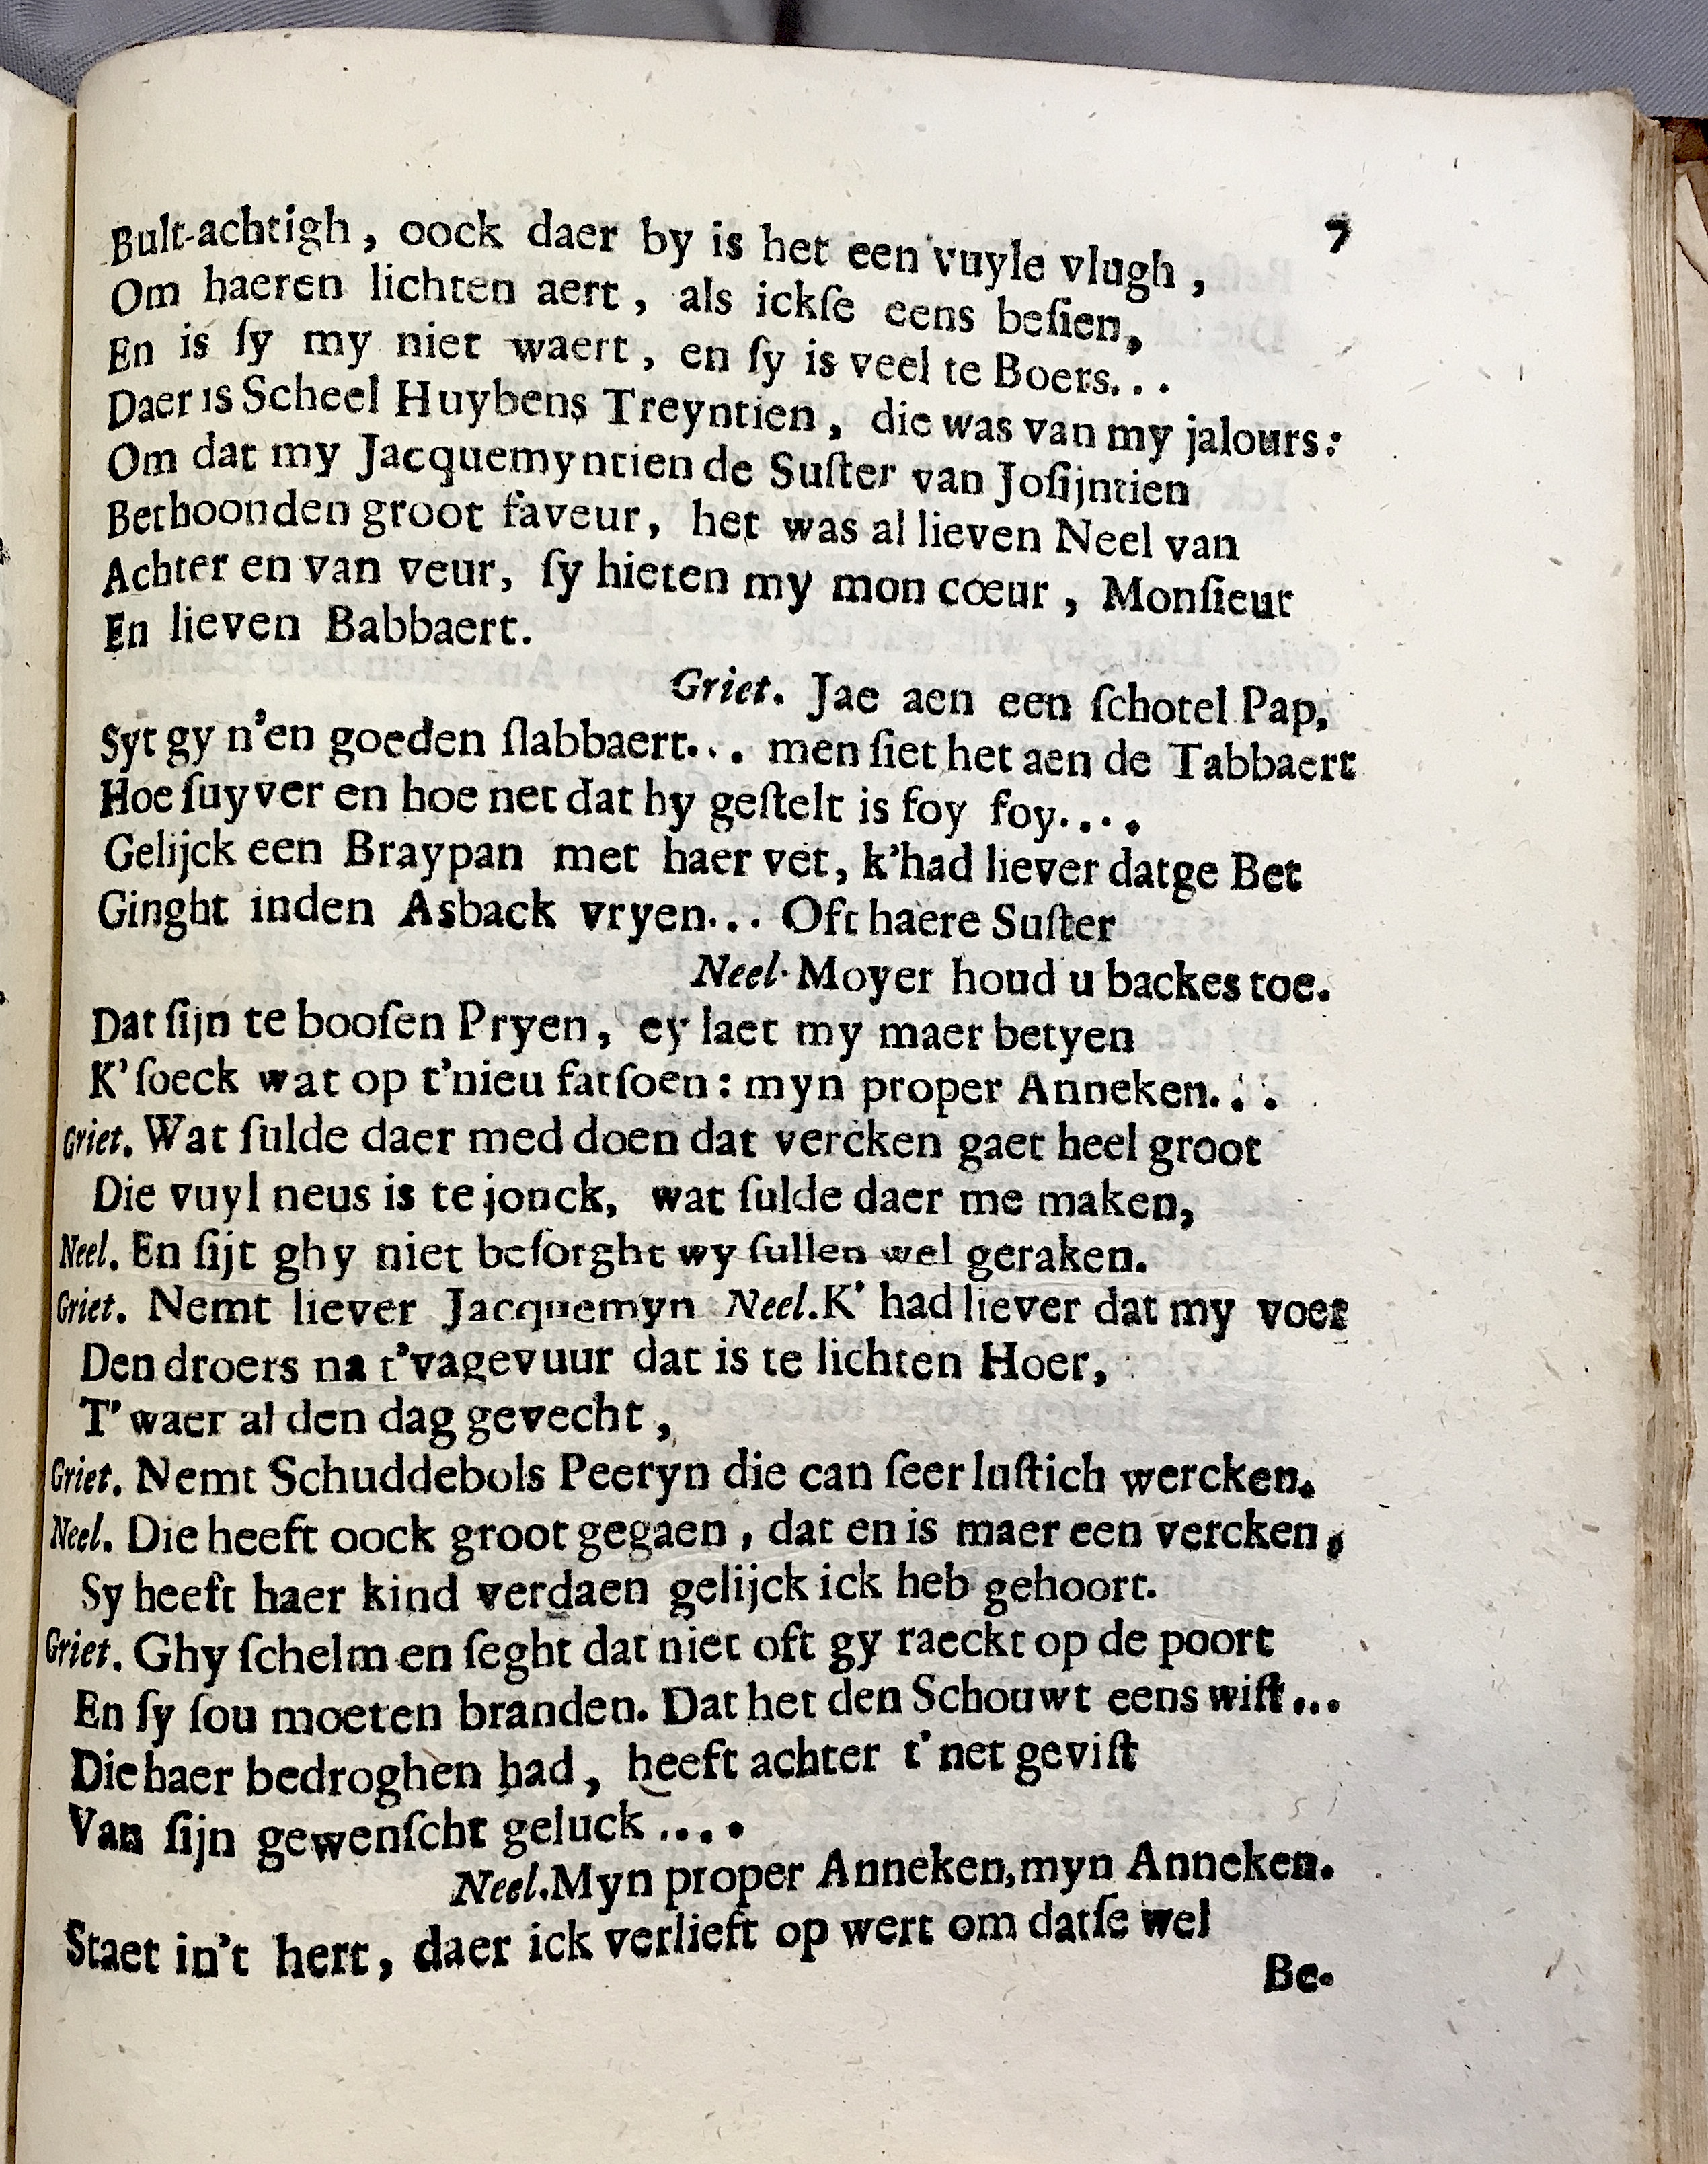 7
Bult-achtigh, oock daer by is het een vuyle vlugh,
Om haeren lichten aert, als ickſe eens beſien,
En is ſy my niet waert, en ſy is veel te Boers...
Daer is Scheel Huybens Treyntien, die was van my jalours:
Om dat my Jacquemyntien de Suſter van Joſijntien
Bethoonden groot faveur, het was al lieven Neel van
Achter en van veur, ſy hieten my mon cœur, Monſieur
En lieven Babbaert.
Griet. Jae aen een ſchotel Pap,
Syt gy n'en goeden ſlabbaert... men ſiet het aen de Tabbaert
Hoe ſuyver en hoe net dat hy geſtelt is foy foy....
Gelijck een Braypan met haer vet, k'had liever datge Bet
Ginght inden Asback vryen... Oft haere Suſter
Neel. Moyer houd u backes toe.
Dat ſijn te booſen Pryen, ey laet my maer betyen
K'ſoeck wat op t'nieu fatſoen: myn proper Anneken...
Griet. Wat ſulde daer med doen dat vercken gaet heel groot
Die vuyl neus is te jonck, wat ſulde daer me maken,
Neel. En ſijt ghy niet beſorght wy ſullen wel geraken.
Griet. Nemt liever Jacquemyn Neel. K' had liever dat my voer
Den droers na t'vagevuur dat is te lichten Hoer,
T' waer al den dag gevecht,
Griet. Nemt Schuddebols Peeryn die can ſeer luſtich wercken.
Neel. Die heeft oock groot gegaen, dat en is maer een vercken,
Sy heeft haer kind verdaen gelijck ick heb gehoort.
Griet. Ghy ſchelm en ſeght dat niet oft gy raeckt op de poort
En ſy ſou moeten branden. Dat het den Schouwt eens wiſt...
Die haer bedroghen had, heeft achter t' net geviſt
Van ſijn gewenſcht geluck ....
Neel. Myn proper Anneken, myn Anneken.
Staet in't hert, daer ick verlieft op wert om datſe wel
Be-